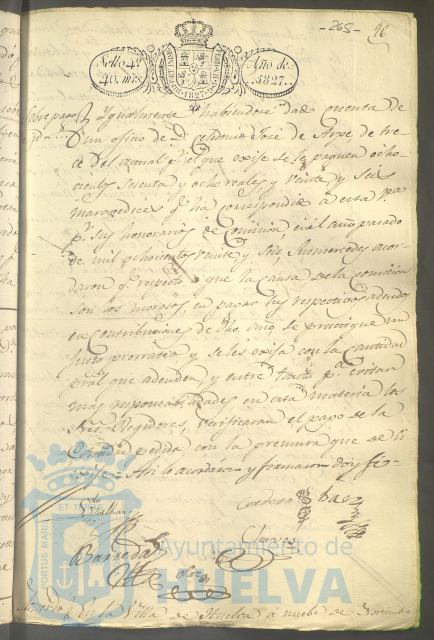 -265- 16
Sello 4º
40. mrs
Año de
1827.
Sobre pago
Ygualmente habiendose dado cuenta de
un oficio de D. José de de tre
ce del actual pr. el que exije se le paguen ocho
cientos sesenta y ocho reales y veinte y seis
maravedices qe. ha correspondido a esta
pr. sus honorarios de Comision, en el año pasado
de mil ochocientos veinte y seis, sus mercedes acor
daron qe. respecto a que la causa de la comision
son los morosos, en pagar sus respectivos adeudos
en contribuciones de dho. año, se practique un
justo prorrateo y se les exija con la Cantidad
pral. que adeuden, y entre tanto pa. evitar
mas responsabilidades en esta materia los
Sres. Regidores, verificaran el pago de la
Cantidad pedida con la premura que se le
exije. Asi lo acordaron y firmaron doy fe-
Cordero Baez
Barreda
Acuerdo En la Villa de Huelva a nuebe de Noviembre
ET TERRAE
PORTUS MARIS
Ayuntamiento de
HUELVA